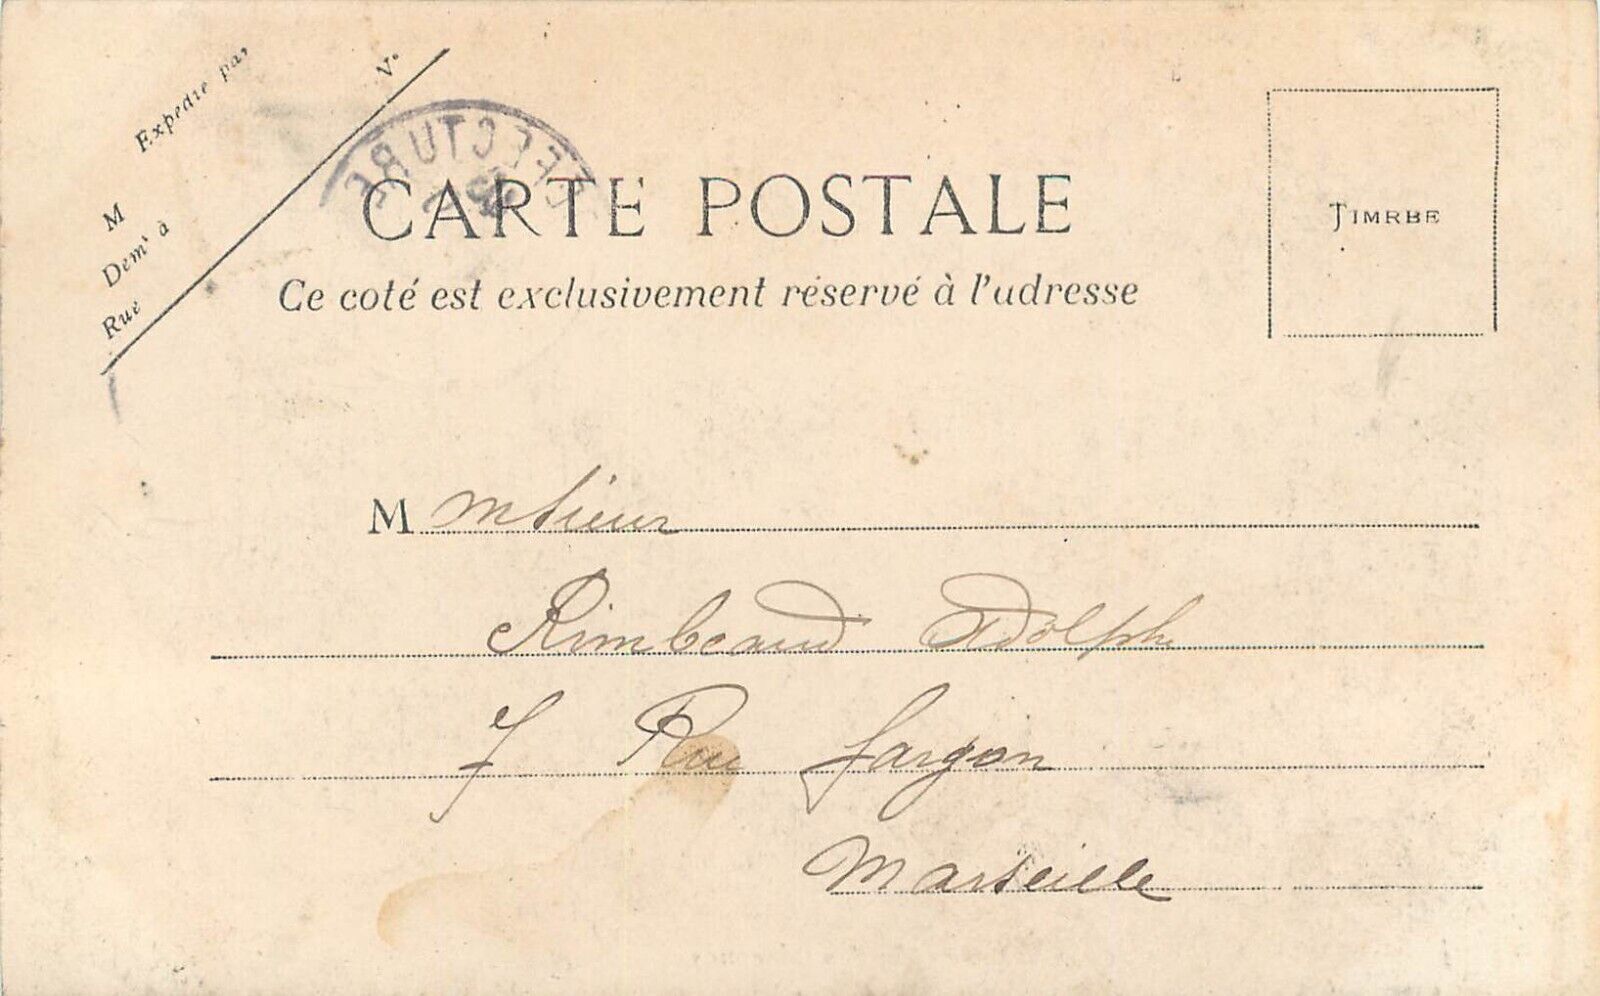 Expedie par
M
Demt à
Rue
No
CARTE POSTALE
Ce coté est exclusivement réservé à l'adresse
TIMRBE
M Monsieur
Rimbeaud Adolphe
7 Rue fargon
Marseille